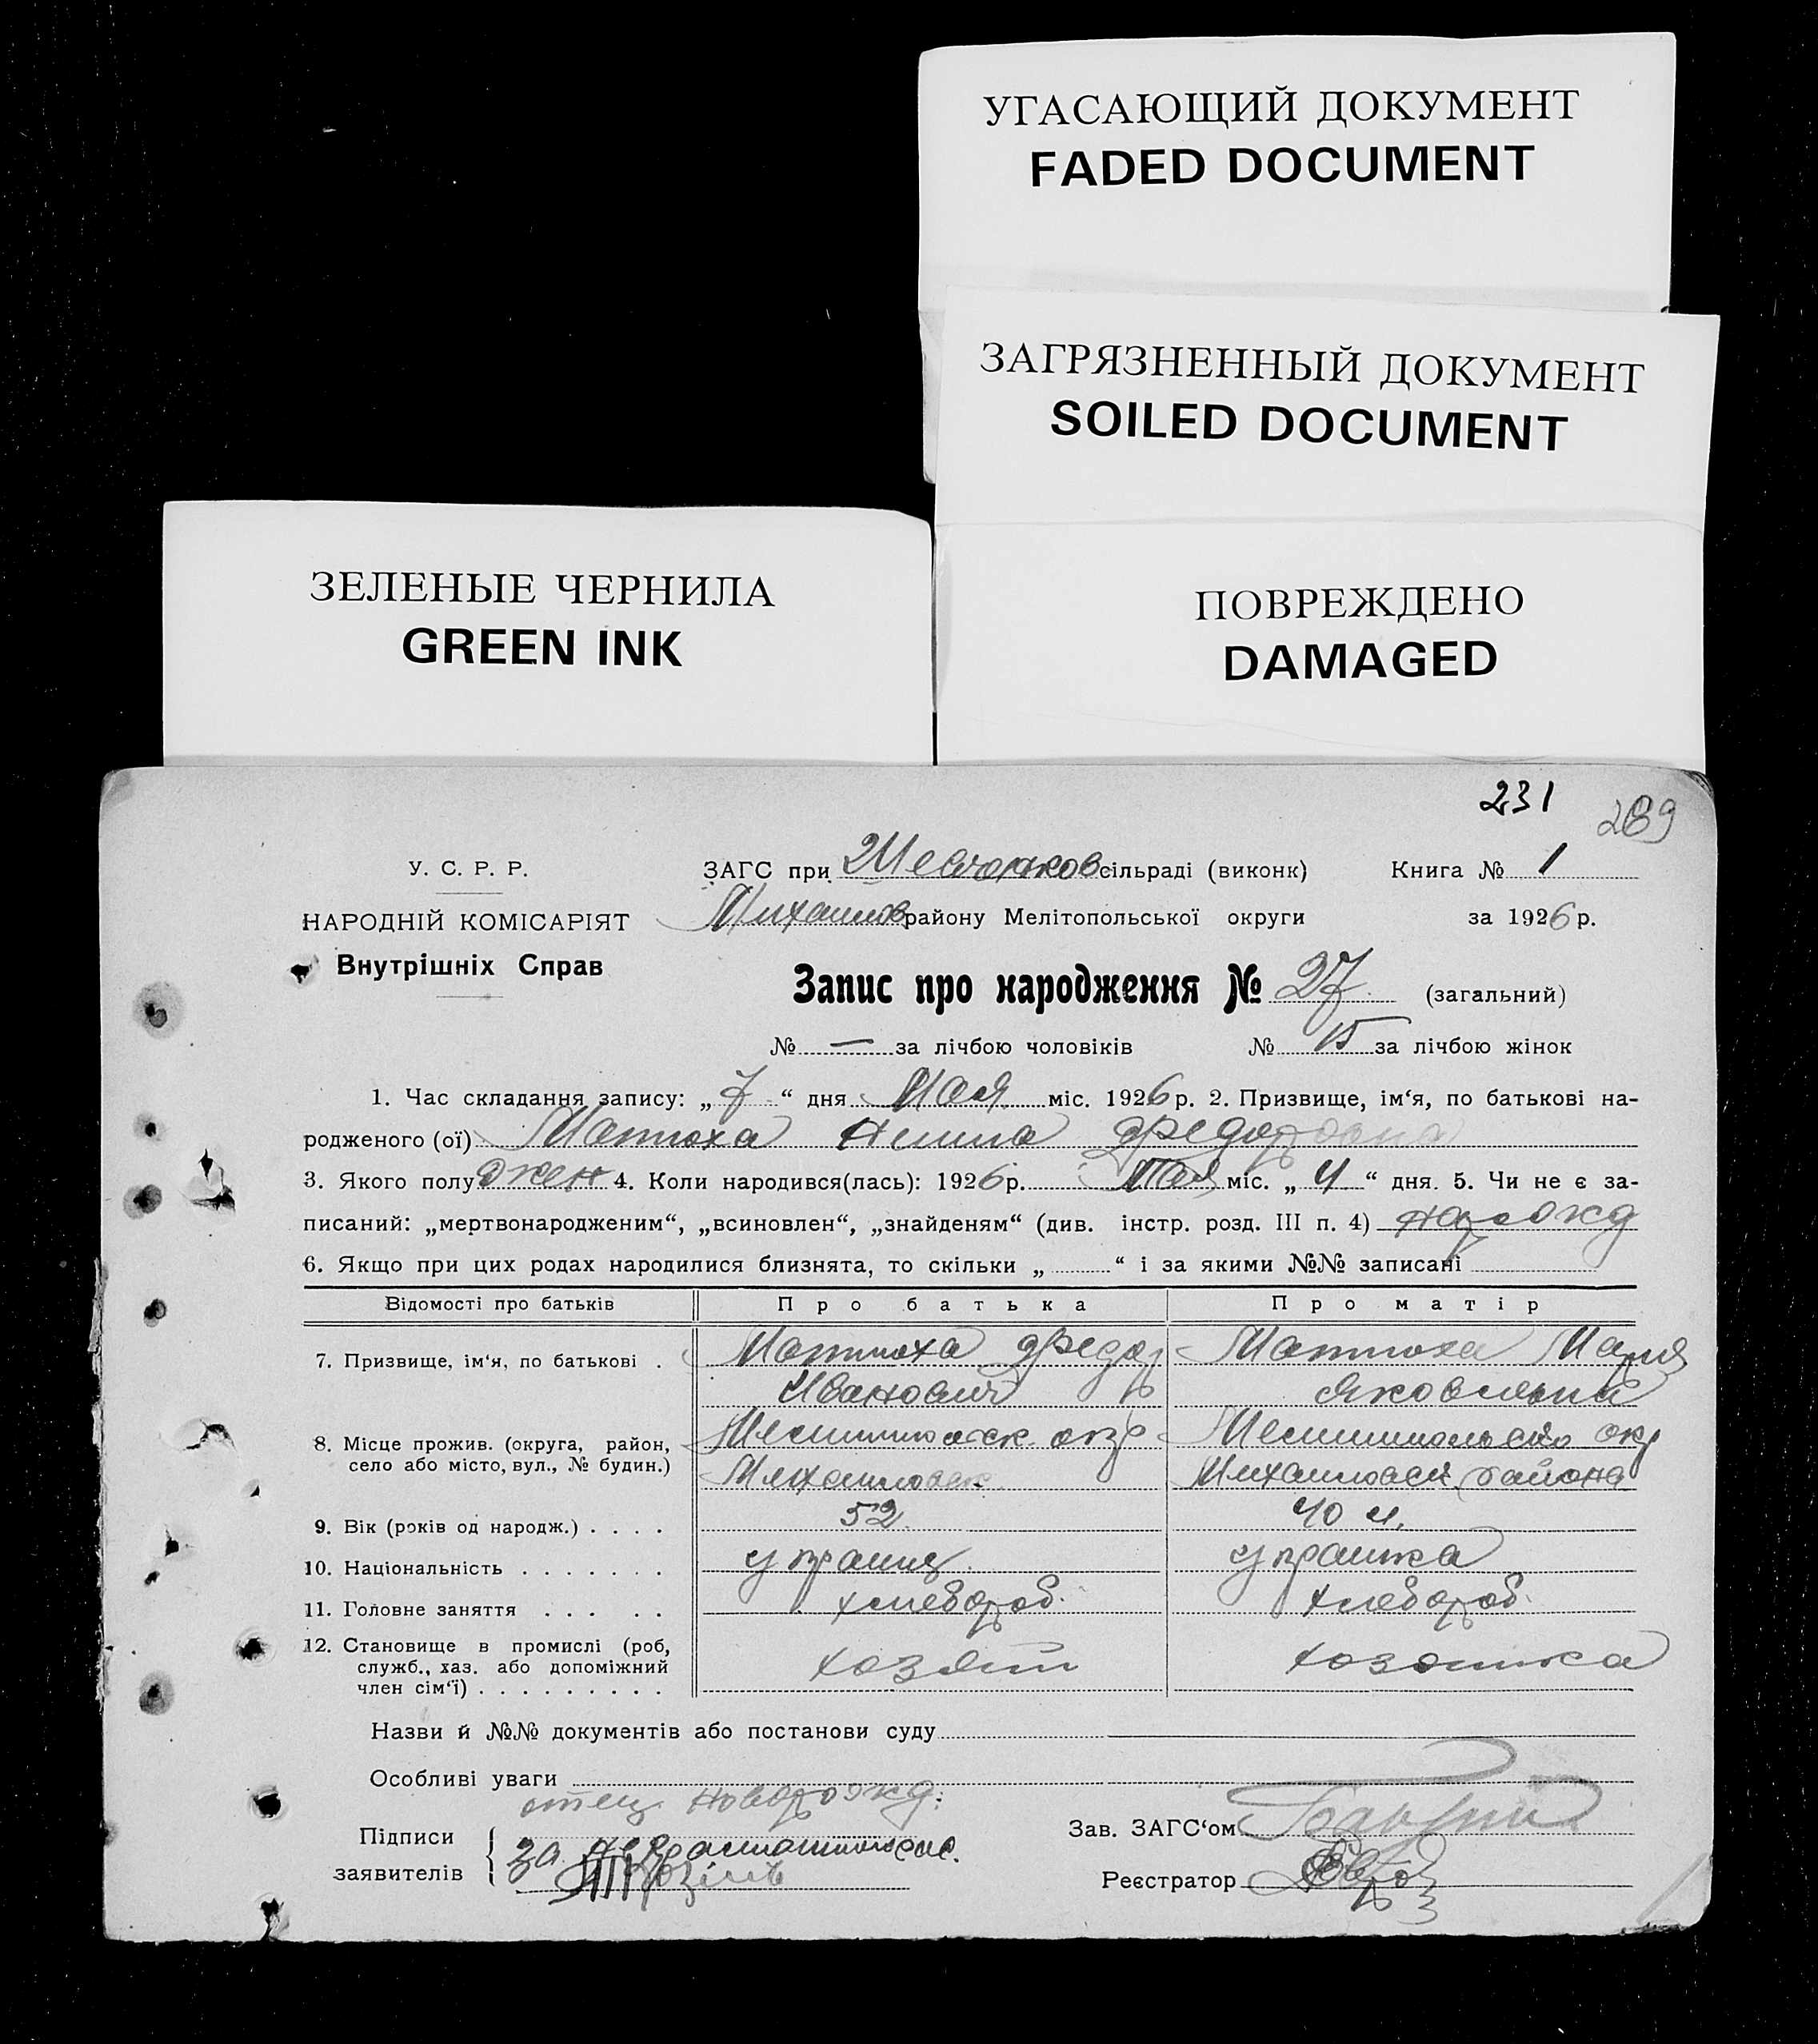 УГАСАЮЩИЙ ДОКУМЕНТ
FADED DOCUMENT
ЗАГРЯЗНЕННЫЙ ДОКУМЕНТ
SOILED DOCUMENT
ЗЕЛЕНЫЕ ЧЕРНИЛА
GREEN INK
ПОВРЕЖДЕНО
DAMAGED
231
269
У. С. Р. Р.
НАРОДНІЙ КОМІСАРІЯТ
Внутрішніх Справ
ЗАГС при сільраді (виконк) Книга № 1
Михайлов району Мелітопольської округи за 1926 р.
Запис про народження № 27 (загальний)
№ — за лічбою чоловіків № 15 за лічбою жінок
1. Час складання запису: „ 7 “ дня Мая міс. 1926 р. 2. Призвище, ім‘я, по батькові на-
родженого (ої) Матюха Нина Федоровна
3. Якого полу жен 4. Коли народився(лась): 1926 р. Мая міс. „ 4 “ дня. 5. Чи не є за-
писаний: „мертвонародженим“, „всиновлен“, „знайденям“ (див. інстр. розд. III п. 4)
6. Якщо при цих родах народилися близнята, то скільки „ “ і за якими №№ записані
Відомості про батьків
Про батька
Про матір
7. Призвище, ім‘я, по батькові .
Матюха Федор
Иванович
Матюха Мария
Яковлевна
8. Місце прожив. (округа, район,
село або місто, вул., № будин.)
Мелитопольск. окр
Михайловск
Мелитопольск окр
Михайловск района
9. Вік (років од народж.) . . . .
52
40 л.
10. Національність . . . . . . .
украинц
украинка
11. Головне заняття . . . . .
хлебороб.
хлебороб.
12. Становище в промислі (роб,
служб., хаз. або допоміжний
член сім‘ї) . . . . . . . . .
хозяин
хозяика
Назви й №№ документів або постанови суду
Особливі уваги
отец новорожд.
Підписи
заявителів
за
Зав. ЗАГС‘ом
Реєстратор